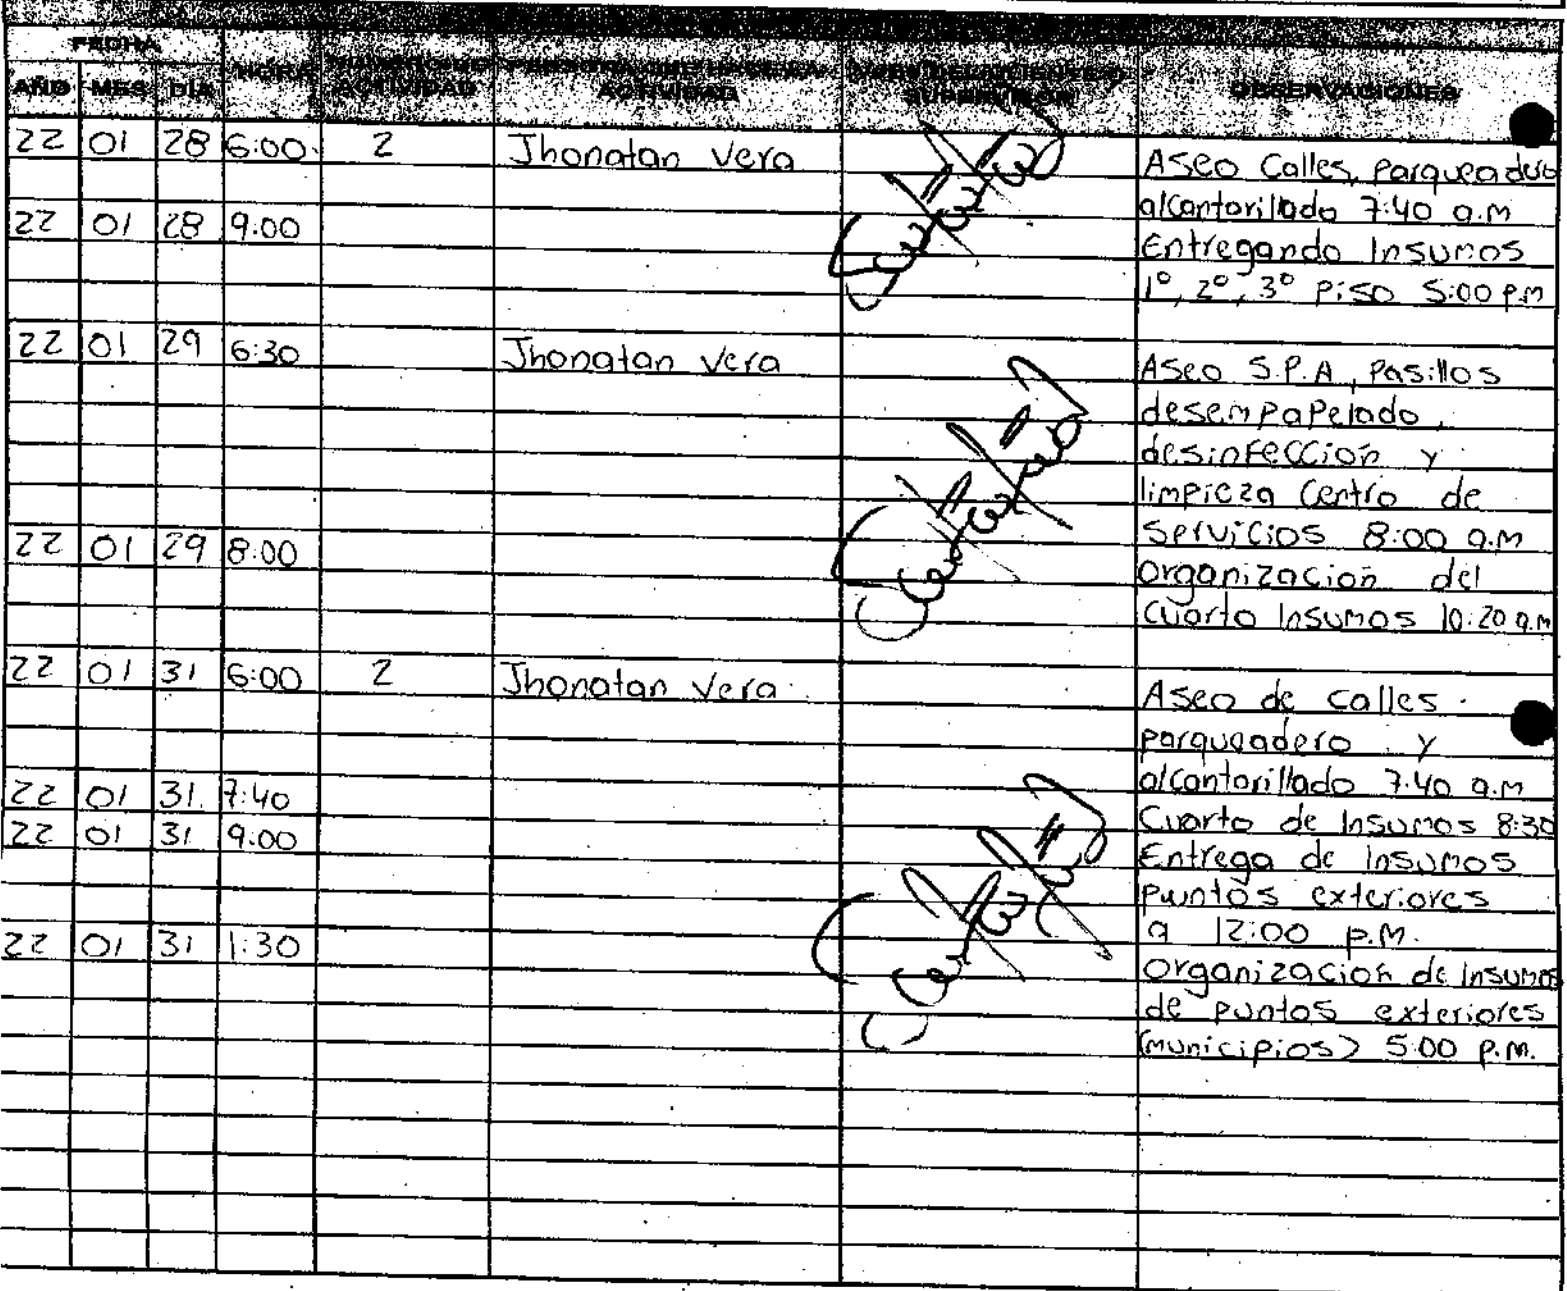 FECHA
AÑO MES DIA HORA ACTIVIDAD ACTIVIDAD OBSERVACIONES
22 01 28 6:00 2 Jhonatan Vera Aseo Calles, parqueadero
alcantarillado 7:40 a.m
22 01 28 9:00 Entregando Insumos
1°, 2°, 3° Piso 5:00 P.M
22 01 29 6:30 Jhonatan Vera Aseo S.P.A, Pasillos
desempapelado,
desinfección y
limpieza Centro de
Servicios 8:00 a.m
22 01 29 8:00 Organización del
Cuarto Insumos 10:20 a.m
22 01 31 6:00 2 Jhonatan Vera Aseo de calles
parqueadero y
alcantarillado 7:40 a.m
22 01 31 7:40 Cuarto de Insumos 8:30
22 01 31 9:00 Entrega de insumos
puntos exteriores
a 12:00 p.m.
22 01 31 1:30 Organización de insumos
de puntos exteriores
(municipios) 5:00 p.m.